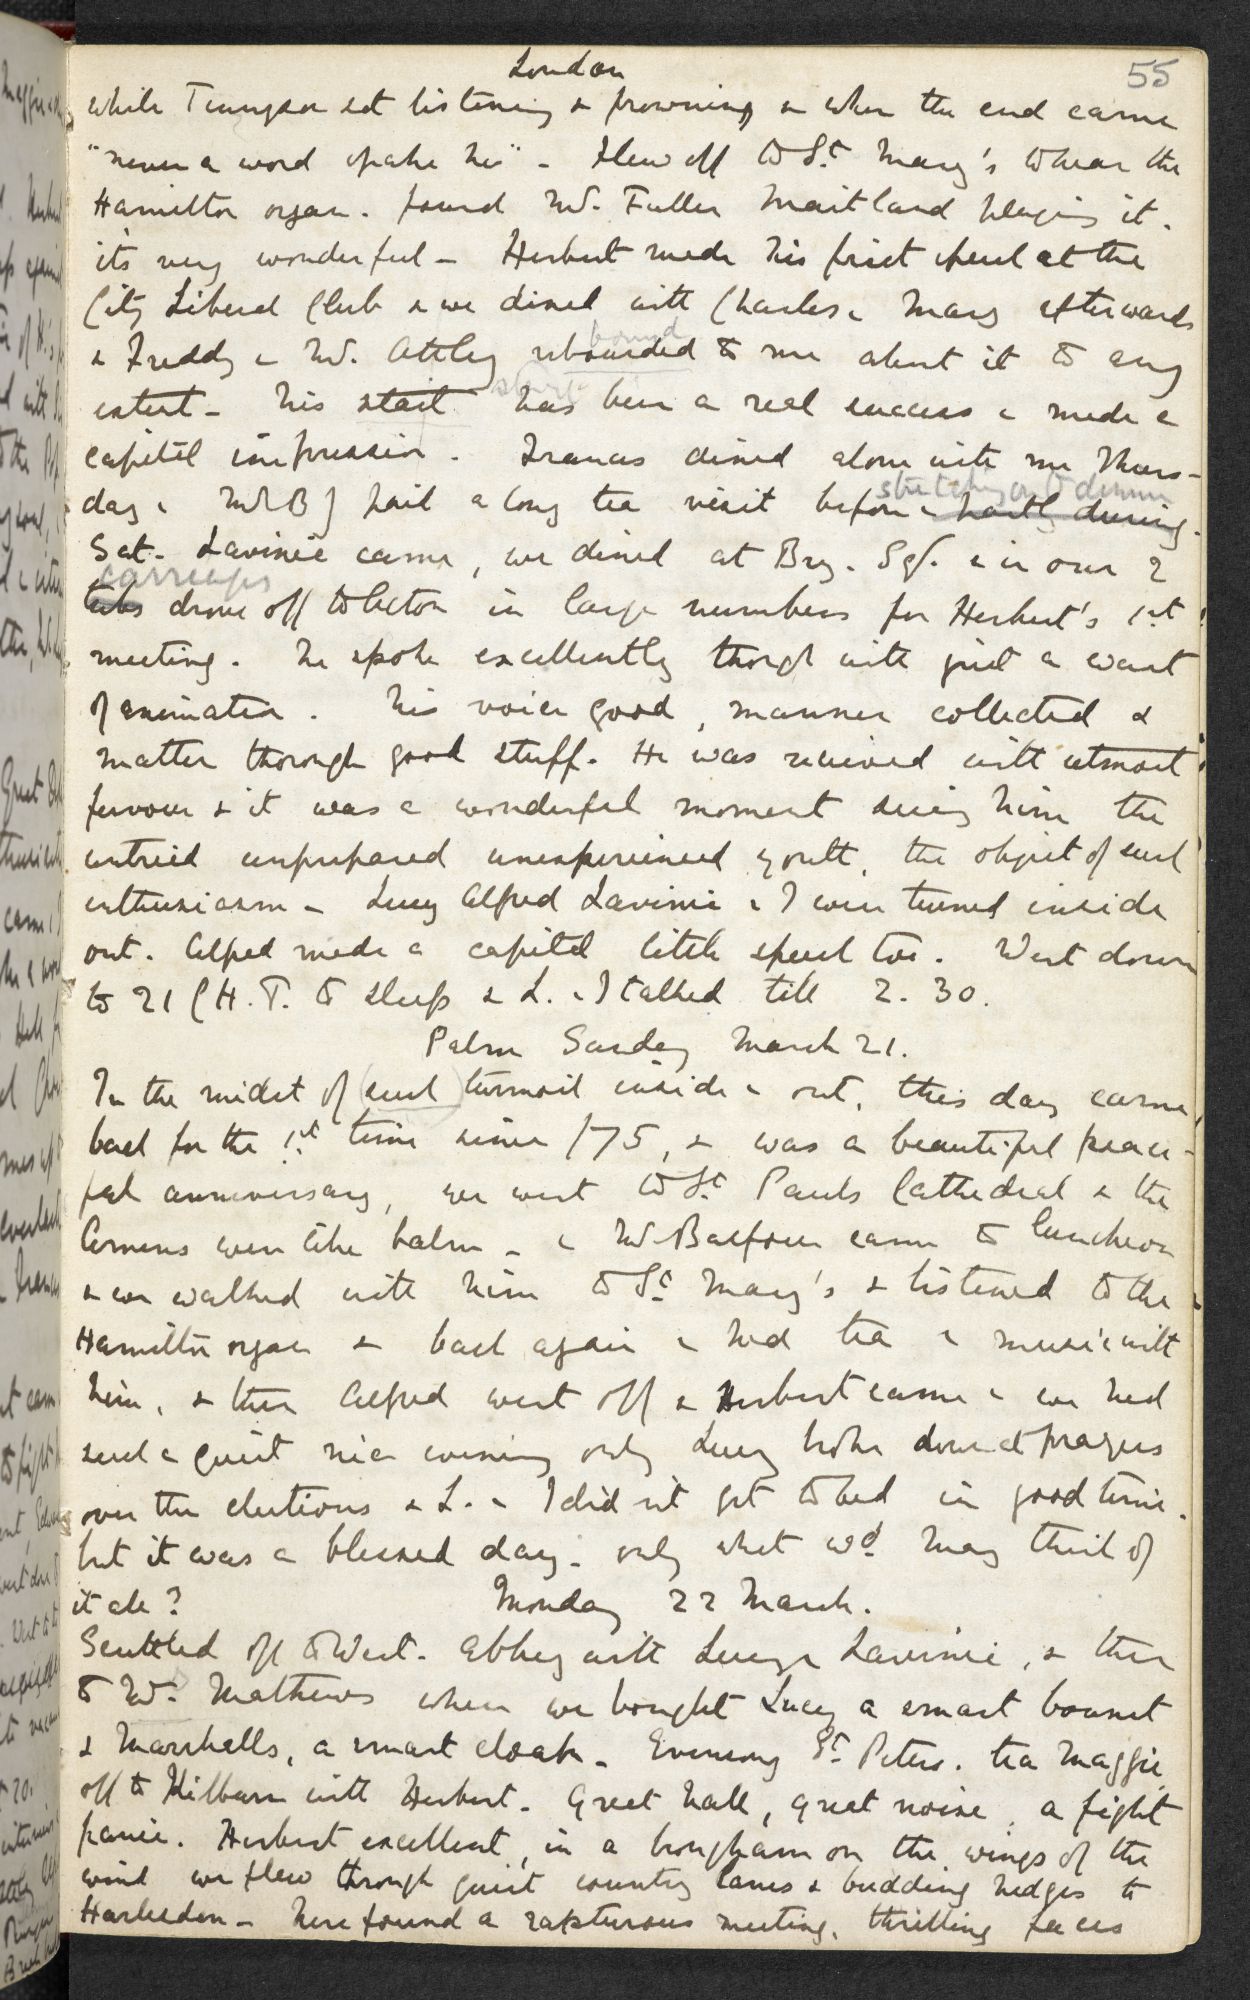 London
55
while Tennyson sat listening & frowning & when the end came
"never a word spake he" - Flew off to St. Mary's to hear the
Hamilton organ. found Mr. Fuller Maitland playing it.
it's very wonderful - Herbert made his first speech at the
City Liberal Club & we dined with Charles & Mary afterwards
bound
& Freddy & Mr. Ottley rebounded to me about it to any
start
extent - his start has been a real success & made a
capital impression. Frances dined alone with me Thurs-
stretching on to dinner
day & Mr B paid a long tea visit before & partly during.
Sat. Lavinia came, we dined at Bry. Sq. & in our 2
carriages
tubs drove off to Acton in large numbers for Herbert's 1st
meeting. he spoke excellently though with just a want
of animation. his voice good, manner collected &
matter thorough good stuff. He was received with utmost
fervour & it was a wonderful moment seeing him the
untried unprepared unexperienced youth, the object of such
enthusiasm - Lucy Alfred Lavinia & I were turned inside
out. Alfred made a capital little speech too. Went down
to 21 C.H.T. to sleep & L. & I talked till 2.30.
Palm Sunday March 21.
In the midst of (such) turmoil inside & out, this day came
back for the 1st time since /75, & was a beautiful peace-
ful anniversary, we went to St. Pauls Cathedral & the
Comens were like balm - & Mr Balfour came to luncheon
& we walked with him to St. Mary's & listened to the
Hamilton organ & back again & had tea & music with
him, & then Alfred went off & Herbert came & we had
such a quiet nice evening only Lucy broke down at prayers
over the elections & L. & I did nt get to bed in good time.
but it was a blessed day - only what wd. May think of
it all? Monday 22 March.
Scuttled off to West. Abbey with Lucy & Lavinia, & then
to Mrs. Mathews where we bought Lucy a smart bonnet
& Marshalls, a smart cloak - Evensong St. Peters. tea Maggie
off to Kilburn with Herbert. Great hall, great noise, a fight
panic. Herbert excellent, in a brougham on the wings of the
wind we flew through quiet country lanes & budding hedges to
Harlesden - here found a rapturous meeting, thrilling faces